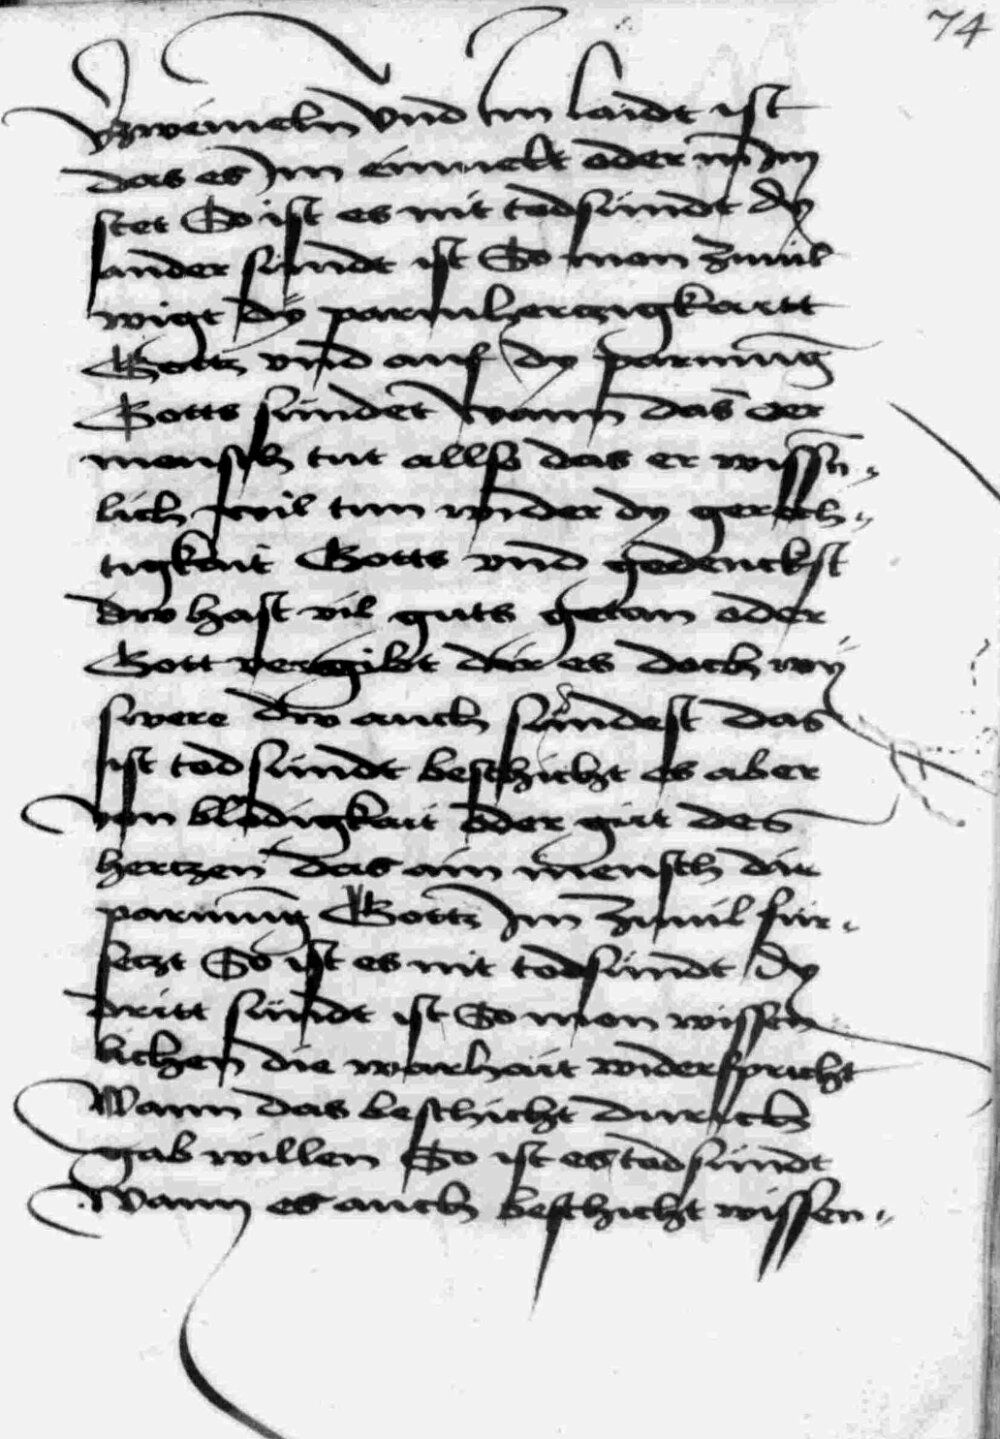 74
v̈zweiueln vnd im laidt ist
das es Im einuelt oder in Im
stet So ist es nit todsündt dy
ander sündt ist So man zuuil
wigt dÿ parmherczigkaitt
Gotts vnd auf dy parmūg
Gotts sündet wann das der
mensch tut allso das er wissn̄„
lich wil tun wider dy gerech„
tigkait Gotts vnd gedenckst
dw hast vil guts getan oder
Gott vergibt dir es doch wÿ
swere dw auch sündest das
ist todsündt beschicht es aber
von blödigkait oder güt des
hertzen das ain mensch dir
parmūg Gotts Im zuuil für„
seczt So ist es nit todsündt dy
dritt sündt ist So man wissen
lichen die warhait widerspricht
Wann das beschicht durich
gab willen So ist es todsündt
Wann es auch beschicht wissen„